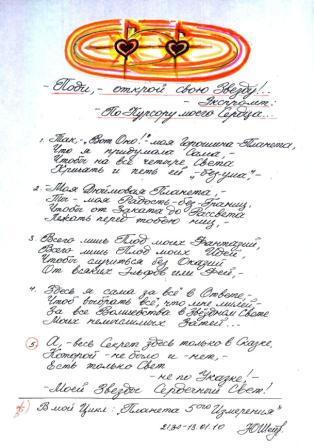 - Поди, - открой свою Звезду!..
- Экспромт:
- По Курсору моего Сердца...
1. Так, - "Вот Оно!" - моя Горошина-Планета,
Что я придумала Сама, -
Чтобы на все четыре Света
Кричать и петь ей
2. - Моя Дюймовая Планета, -
Ты - моя Радость - без Границ,
Чтобы от Заката до Рассвета
Лежать перед тобою ниц, -
3. Всего лишь Плод моих Фантазий,
Всего лишь Плод моих Идей,
Чтобы случиться без Оказий
От всяких Эльфов или Фей, -
4. Здесь я сама за всё в Ответе, -
Чтоб выбрать всё, что мне милей,
За все Волшебства в Звёздном Свете
Моих немыслимых Затей...
5. А, - весь Секрет здесь только в Сказке,
Которой - не было и - нет, -
Есть только Свет
- не по Указке! -
- Моей Звезды Сердечный Свет!
В мой Цикл: "Планета 5ого Измерения"
2130 - 13.01.10